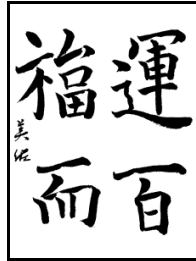 運百
福而
美